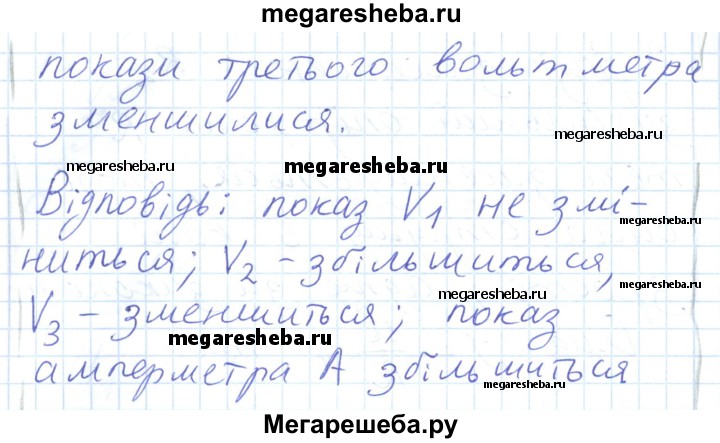 megaresheba.ru
покази третього вольтметра
megaresheba.ru
зменшилися.
megaresheba.ru
megaresheba.ru
megaresheba.ru
Відповідь: показ V1 не змі-
megaresheba.ru
ниться; V2 - збільшиться,
megaresheba.ru
megaresheba.ru
V3 - зменшиться; показ
megaresheba.ru
амперметра А збільшиться
megaresheba.ru
Мегарешеба.ру